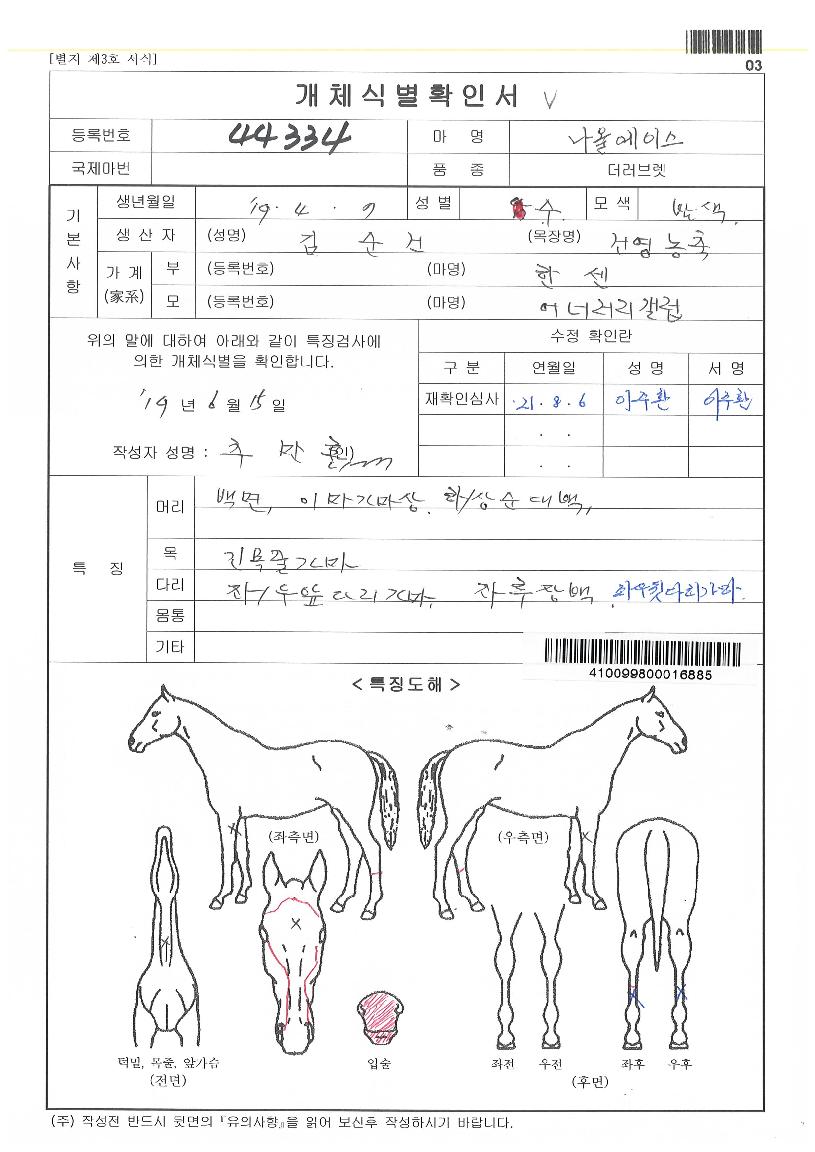 [별지 제3호 서식]
03
개체식별확인서 V
등록번호 44334 마 명 나올에이스
국제마번 품 종 더러브렛
기본사항
생년월일 '19. 4. 9 성별 수 모색 밤색.
생산자 (성명) 김순건 (목장명) 건영농축
가계 (家系) 부 (등록번호) (마명) 한센
모 (등록번호) (마명) 어너러리갤럽
위의 말에 대하여 아래와 같이 특징검사에
의한 개체식별을 확인합니다.
'19 년 6 월 15 일
작성자 성명 : 추만 (인)
수정 확인란
구분 연월일 성명 서명
재확인심사 '21. 8. 6 이주환 이주환
. .
. .
특징
머리 백면, 이마가마상. 하/상순대백,
목 긴목줄가마
다리 좌/우앞다리가마, 좌후장백. 좌우뒷다리가마.
몸통
기타
410099800016885
< 특징도해 >
(좌측면) (우측면)
턱밑, 목줄, 앞가슴
(전면)
입술
좌전 우전 좌후 우후
(후면)
(주) 작성전 반드시 뒷면의 『유의사항』을 읽어 보신후 작성하시기 바랍니다.